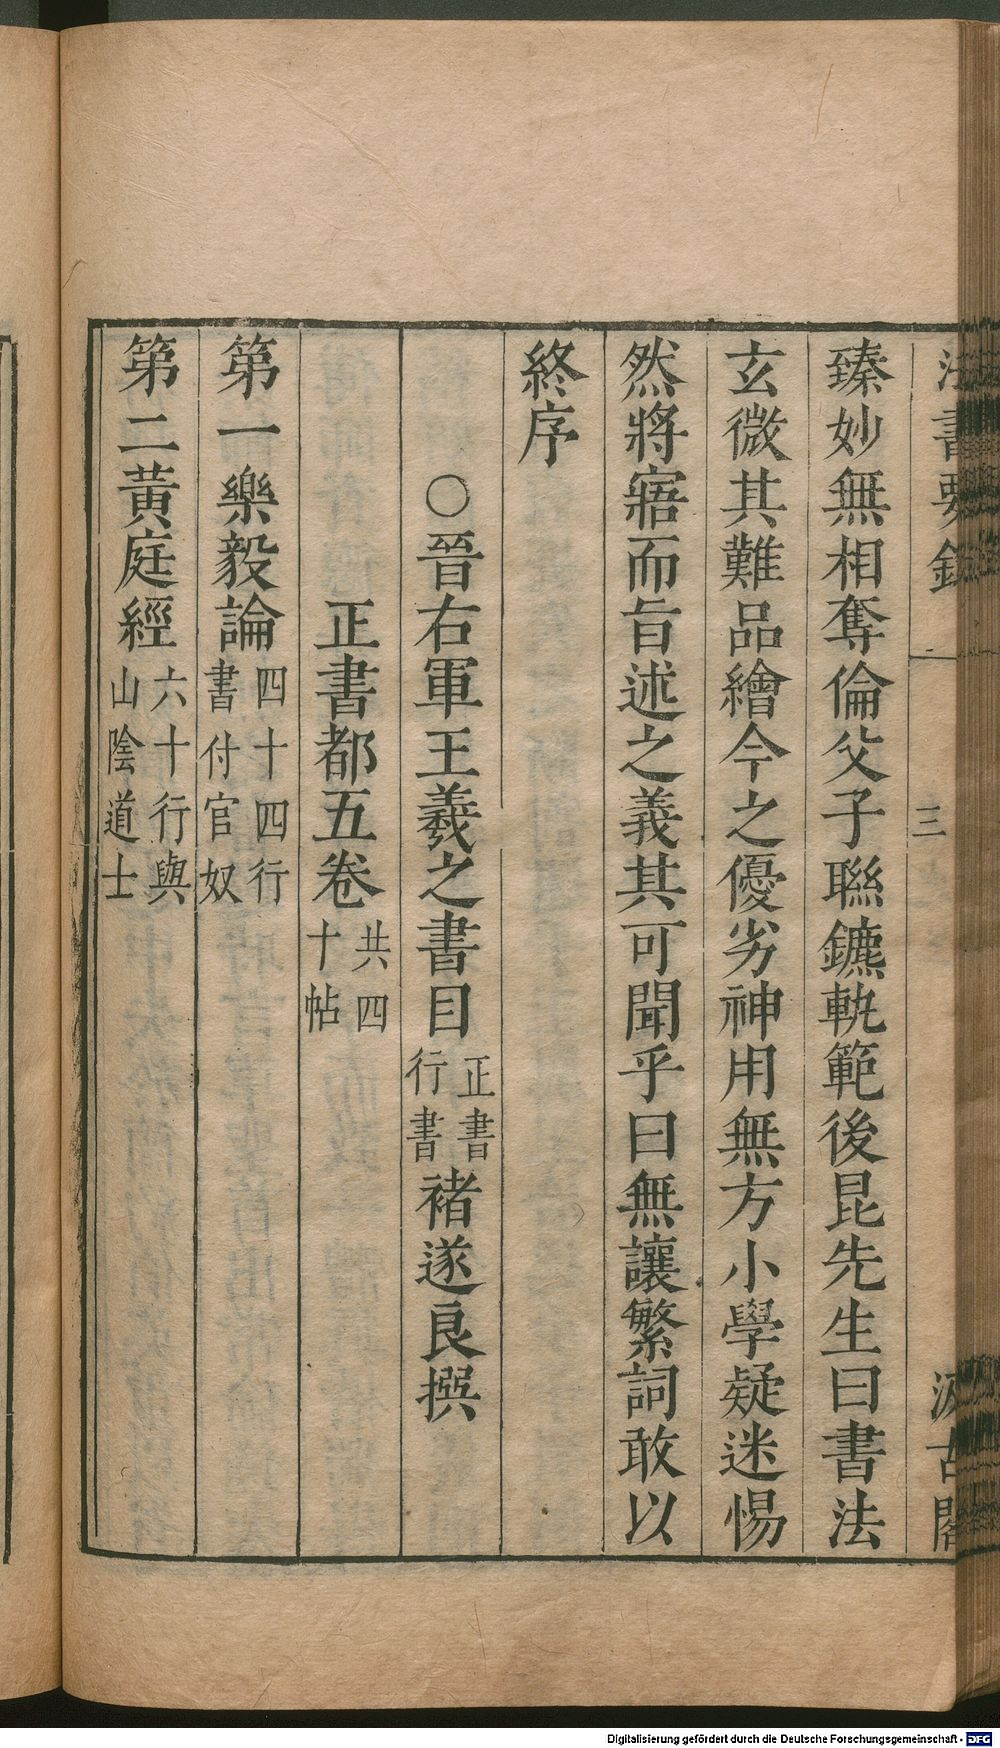 法書要錄 三 汲古閣
臻妙無相奪倫父子聯鑣軌範後昆先生曰書法
玄微其難品繪今之優劣神用無方小學疑迷惕
然將寤而旨述之義其可聞乎曰無讓繁詞敢以
終序
○晉右軍王羲之書目 正書 行書 褚遂良撰
正書都五卷 共四 十帖
第一樂毅論 四十四行 書付官奴
第二黃庭經 六十行與 山陰道士
Digitalisierung gefördert durch die Deutsche Forschungsgemeinschaft - DFG